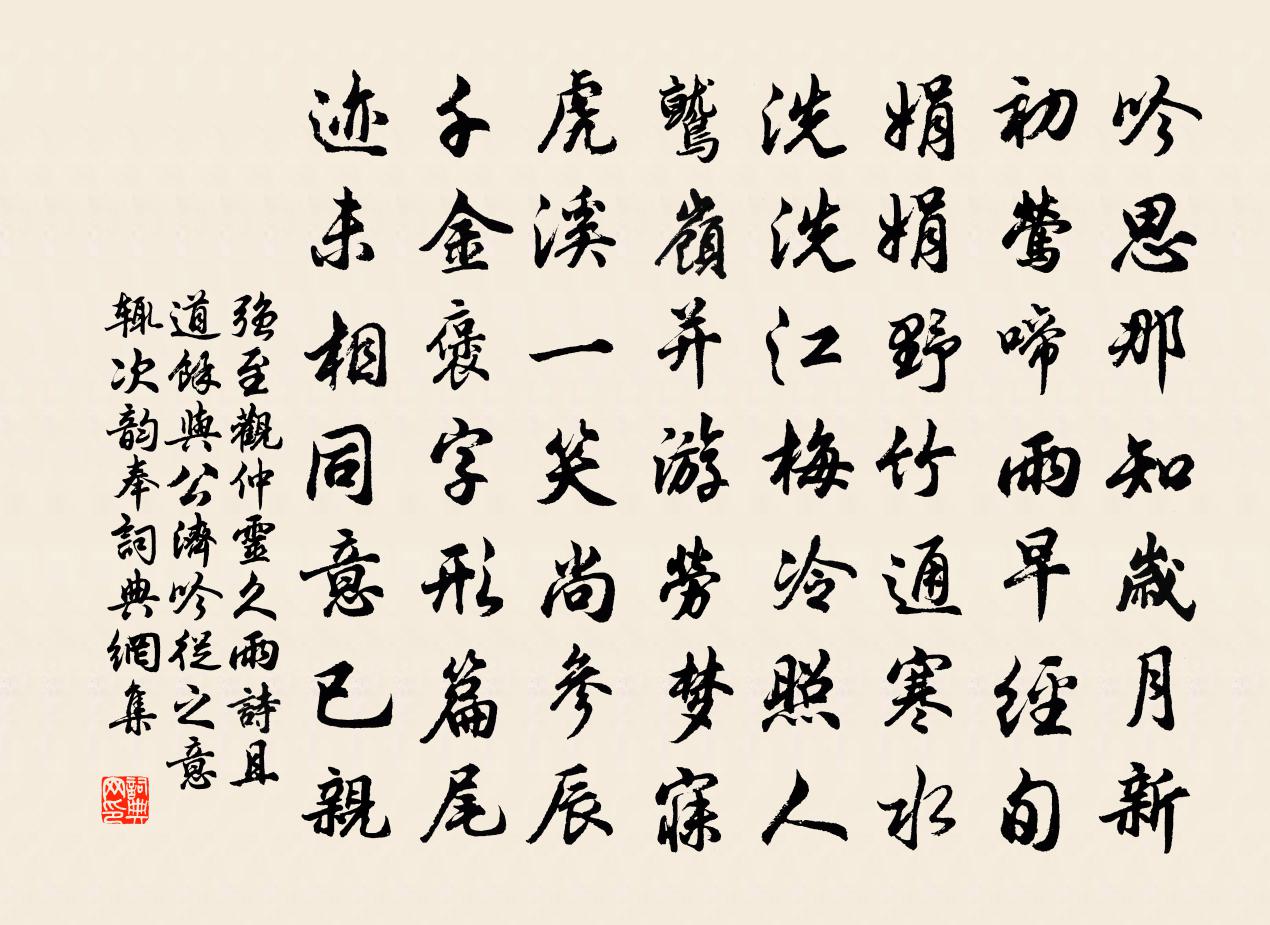 吟思那知歲月新
初鶯啼雨早經旬
娟娟野竹通寒水
洗洗江梅冷照人
鷲嶺并游勞梦寐
虎溪一笑尚參辰
千金褒字形篇尾
迹未相同意已親
強至觀仲靈久雨詩且
道餘與公濟吟從之意
輒次韵奉詞典網集
詞典网印